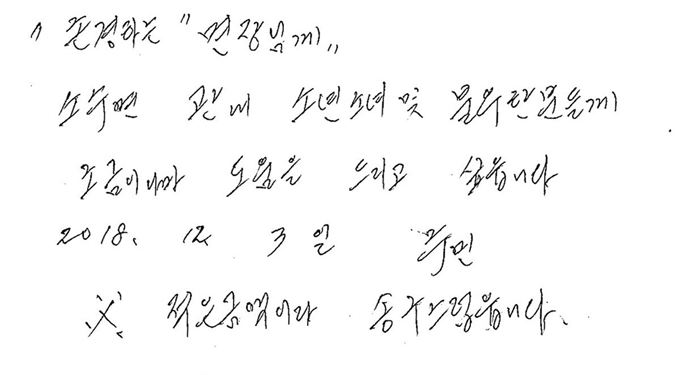 " 존경하는 "면장님게"
소수면 관내 소년소녀 및 불우한분들게
조금이나마 도움을 드리고 싶읍니다
2018. 12. 3일 주민
※ 적은금액이라 송구스럽읍니다.